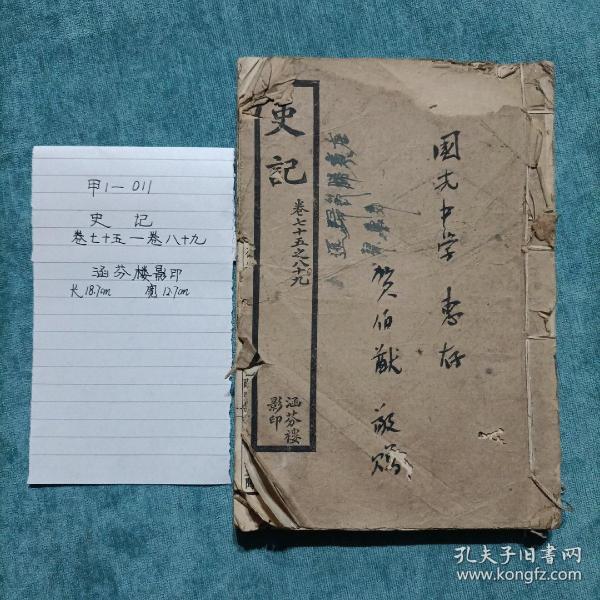 甲1-011
史记
卷七十五一卷八十九
涵芬楼影印
长18.7cm 宽12.7cm
史記
卷七十五之八十九
涵芬樓
影印
国光中学 惠存
贺伯猷 敬赠
孔夫子旧书网
www.kongfz.com